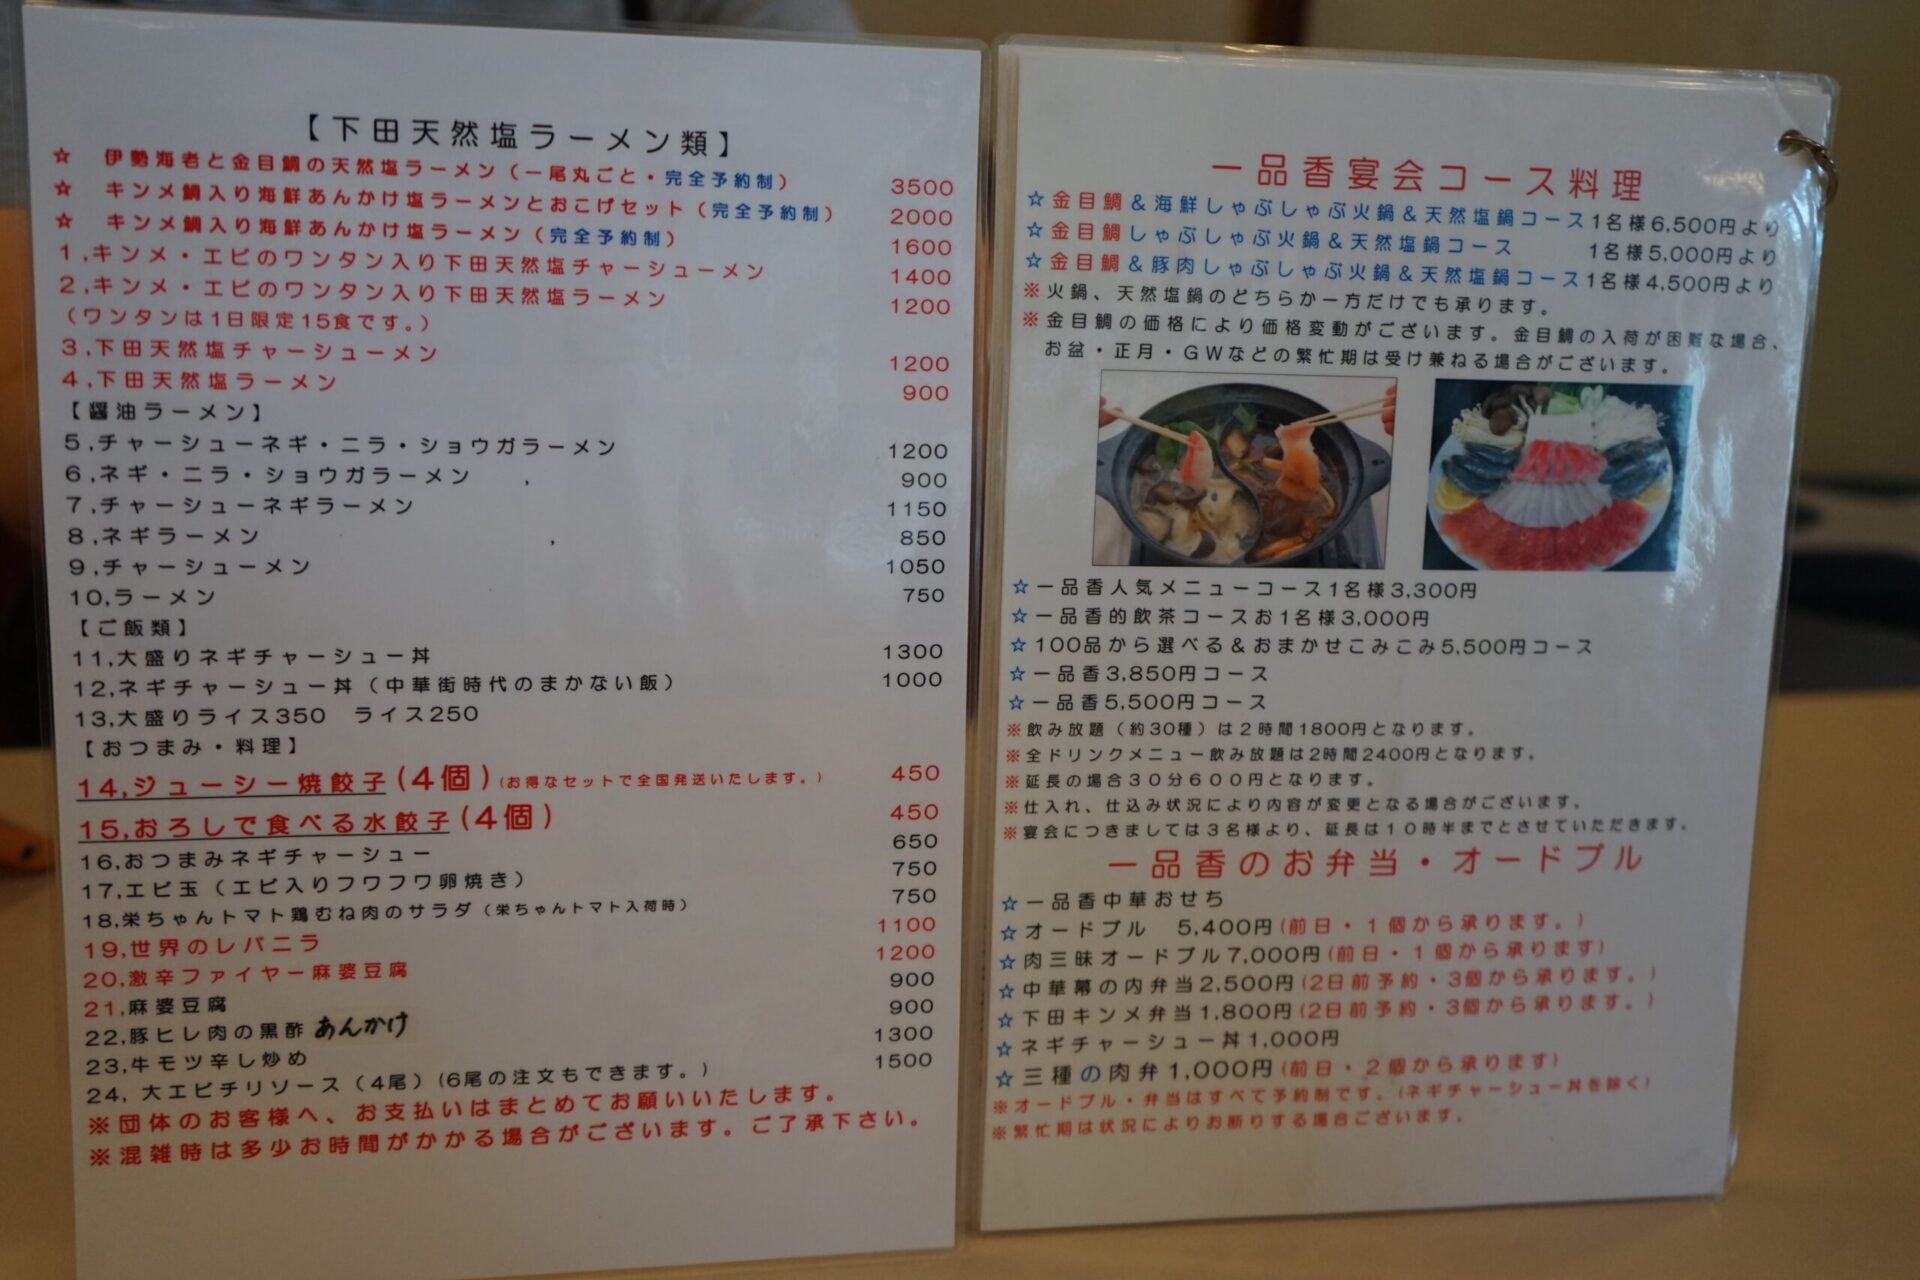 【下田天然塩ラーメン類】
☆ 伊勢海老と金目鯛の天然塩ラーメン（一尾丸ごと・完全予約制） 3500
☆ キンメ鯛入り海鮮あんかけ塩ラーメンとおこげセット（完全予約制） 2000
☆ キンメ鯛入り海鮮あんかけ塩ラーメン（完全予約制） 1600
1,キンメ・エビのワンタン入り下田天然塩チャーシューメン 1400
2,キンメ・エビのワンタン入り下田天然塩ラーメン 1200
（ワンタンは1日限定15食です。）
3,下田天然塩チャーシューメン 1200
4,下田天然塩ラーメン 900
【醤油ラーメン】
5,チャーシューネギ・ニラ・ショウガラーメン 1200
6,ネギ・ニラ・ショウガラーメン 900
7,チャーシューネギラーメン 1150
8,ネギラーメン 850
9,チャーシューメン 1050
10,ラーメン 750
【ご飯類】
11,大盛りネギチャーシュー丼 1300
12,ネギチャーシュー丼（中華街時代のまかない飯） 1000
13,大盛りライス350 ライス250
【おつまみ・料理】
14,ジューシー焼餃子(4個)(お得なセットで全国発送いたします。) 450
15,おろしで食べる水餃子(4個) 450
16,おつまみネギチャーシュー 650
17,エビ玉（エビ入りフワフワ卵焼き） 750
18,栄ちゃんトマト鶏むね肉のサラダ（栄ちゃんトマト入荷時） 750
19,世界のレバニラ 1100
20,激辛ファイヤー麻婆豆腐 1200
21,麻婆豆腐 900
22,豚ヒレ肉の黒酢あんかけ 900
23,牛モツ辛し炒め 1300
24, 大エビチリソース（4尾）(6尾の注文もできます。) 1500
※団体のお客様へ、お支払いはまとめてお願いいたします。
※混雑時は多少お時間がかかる場合がございます。ご了承下さい。
一品香宴会コース料理
☆金目鯛＆海鮮しゃぶしゃぶ火鍋＆天然塩鍋コース1名様6,500円より
☆金目鯛しゃぶしゃぶ火鍋＆天然塩鍋コース 1名様5,000円より
☆金目鯛＆豚肉しゃぶしゃぶ火鍋＆天然塩鍋コース1名様4,500円より
※火鍋、天然塩鍋のどちらか一方だけでも承ります。
※金目鯛の価格により価格変動がございます。金目鯛の入荷が困難な場合、
お盆・正月・GWなどの繁忙期は受け兼ねる場合がございます。
☆一品香人気メニューコース1名様3,300円
☆一品香的飲茶コースお1名様3,000円
☆100品から選べる＆おまかせこみこみ5,500円コース
☆一品香3,850円コース
☆一品香5,500円コース
※飲み放題（約30種）は2時間1800円となります。
※全ドリンクメニュー飲み放題は2時間2400円となります。
※延長の場合30分600円となります。
※仕入れ、仕込み状況により内容が変更となる場合がございます。
※宴会につきましては3名様より、延長は10時半までとさせていただきます。
一品香のお弁当・オードブル
☆一品香中華おせち
☆オードブル 5,400円(前日・1個から承ります。)
☆肉三昧オードブル7,000円(前日・1個から承ります)
☆中華幕の内弁当2,500円(2日前予約・3個から承ります。)
☆下田キンメ弁当1,800円(2日前予約・3個から承ります。)
☆ネギチャーシュー丼1,000円
☆三種の肉弁1,000円(前日・2個から承ります)
※オードブル・弁当はすべて予約制です。(ネギチャーシュー丼を除く)
※繁忙期は状況によりお断りする場合ございます。